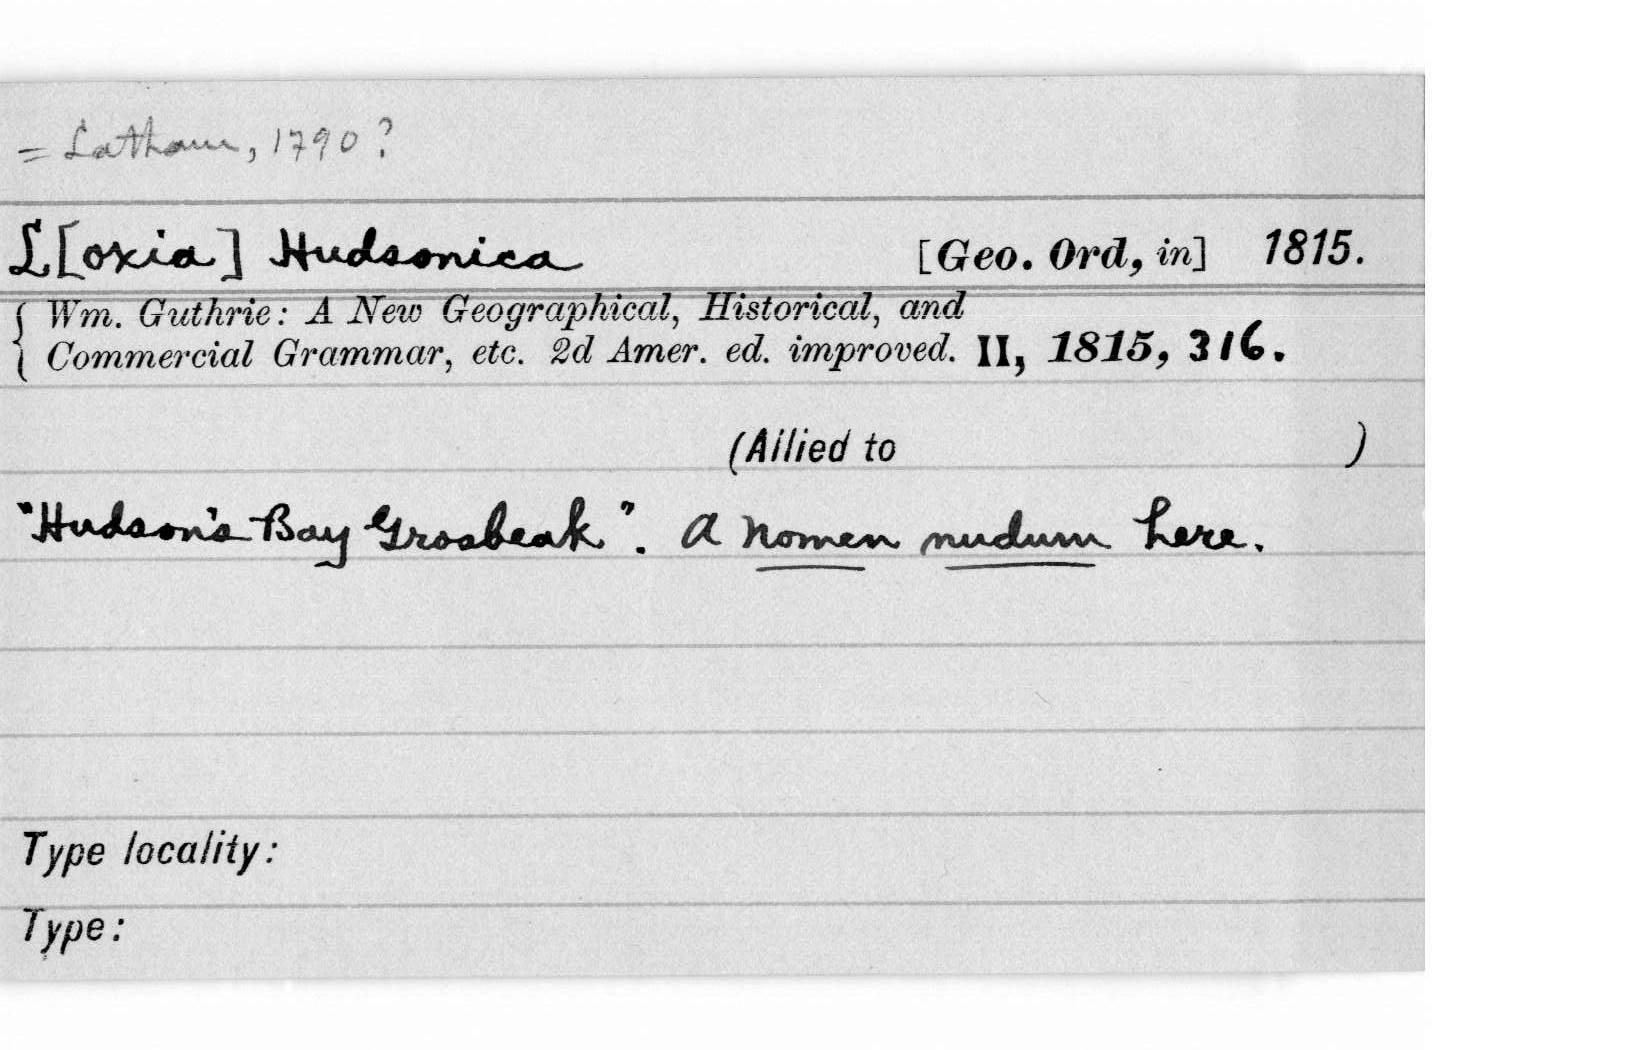 = Latham, 1790?
L[oxia] Hudsonica [Geo. Ord, in] 1815.
Wm. Guthrie: A New Geographical, Historical, and
Commercial Grammar, etc. 2d Amer. ed. improved. II, 1815, 316.
(Allied to )
"Hudson's Bay Grosbeak". A nomen nudum here.
Type locality:
Type: